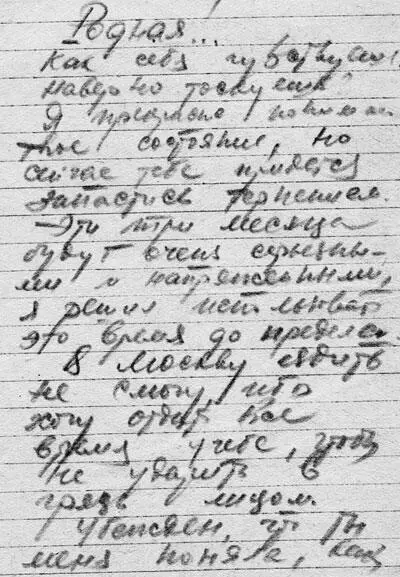 Родная...
Как себя чувствуешь,
наверно тоскуешь?
Я прекрасно понимаю
твое состояние, но
сейчас тебе придется
запастись терпением.
Эти три месяца
будут очень серьезны-
ми и напряженными,
я решил использовать
это время до предела.
В Москву ездить
не смогу, ибо
хочу отдать все
время учебе, чтобы
не ударить в
грязь лицом.
Убежден, что ты
меня поняла, как